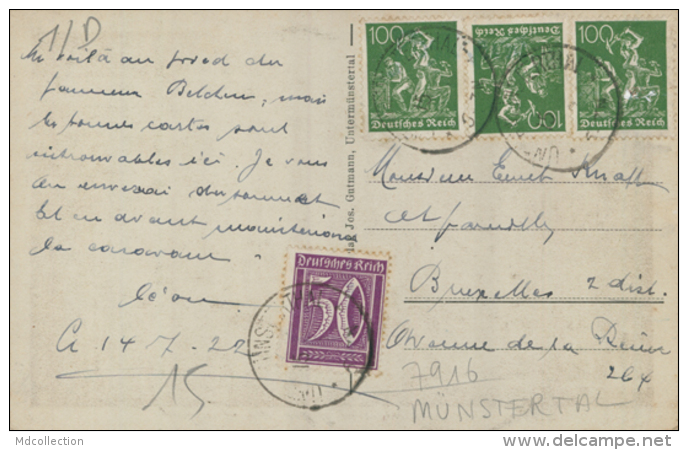 1/D
Me voilà au pied du
fameux Belchen, mais
les bonnes cartes sont
introuvables ici. Je vous
en enverrai du sommet
Et en avant maintenant
la caravane
Léon
Ce 14-7-22
15
Jos. Gutmann, Untermünstertal
100
Deutsches Reich
100
Deutsches Reich
100
Deutsches Reich
Deutsches Reich
50
Monsieur Ernest
et famille
Bruxelles 2 dist.
de la Reine
264
7916
MÜNSTERTAL
Mdcollection
www.delcampe.net